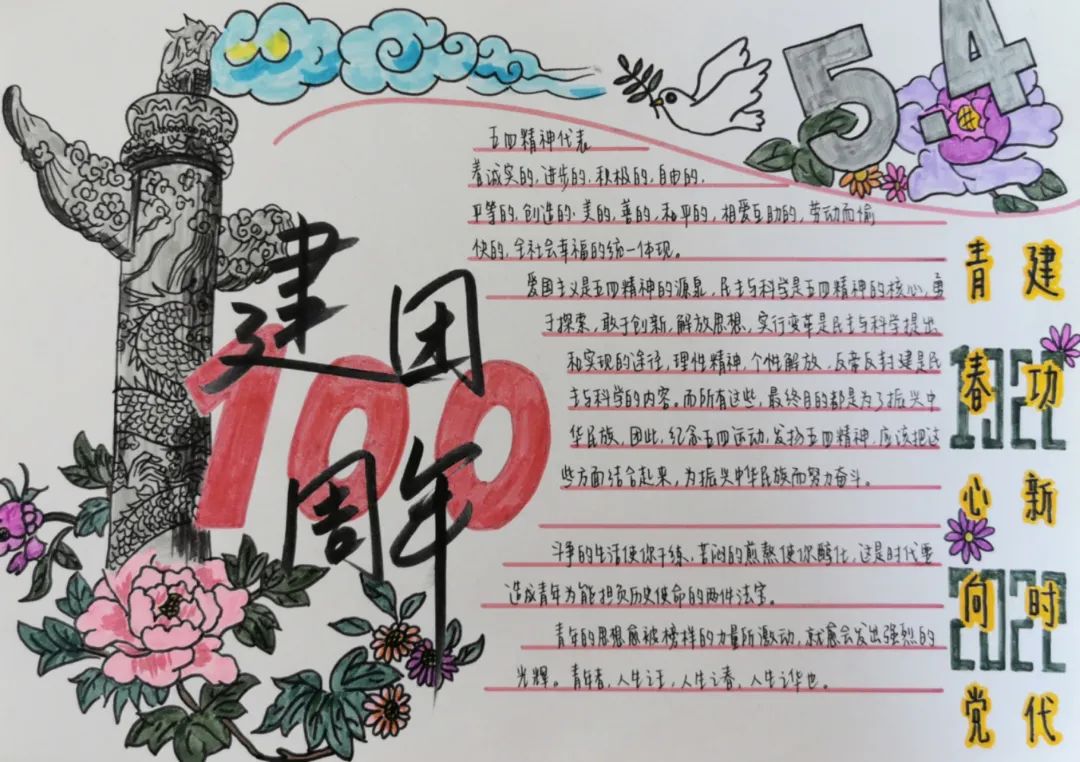 5.4
建团
100
周年
五四精神代表
着诚实的,进步的,积极的,自由的,
平等的,创造的,美的,善的,和平的,相爱互助的,劳动而愉
快的,全社会幸福的统一体现。
爱国主义是五四精神的源泉,民主与科学是五四精神的核心,勇
于探索,敢于创新,解放思想,实行变革是民主与科学提出
和实现的途径,理性精神,个性解放,反帝反封建是民
主与科学的内容。而所有这些,最终目的都是为了振兴中
华民族,因此,纪念五四运动,发扬五四精神,应该把这
些方面结合起来,为振兴中华民族而努力奋斗。
斗争的生活使你干练,苦闷的煎熬使你醇化,这是时代要
造成青年为能担负历史使命的两件法宝。
青年的思想愈被榜样的力量所激动,就愈会发出强烈的
光辉。青年者,人生之王,人生之春,人生之华也。
建功新时代
青春心向党
1922
2022